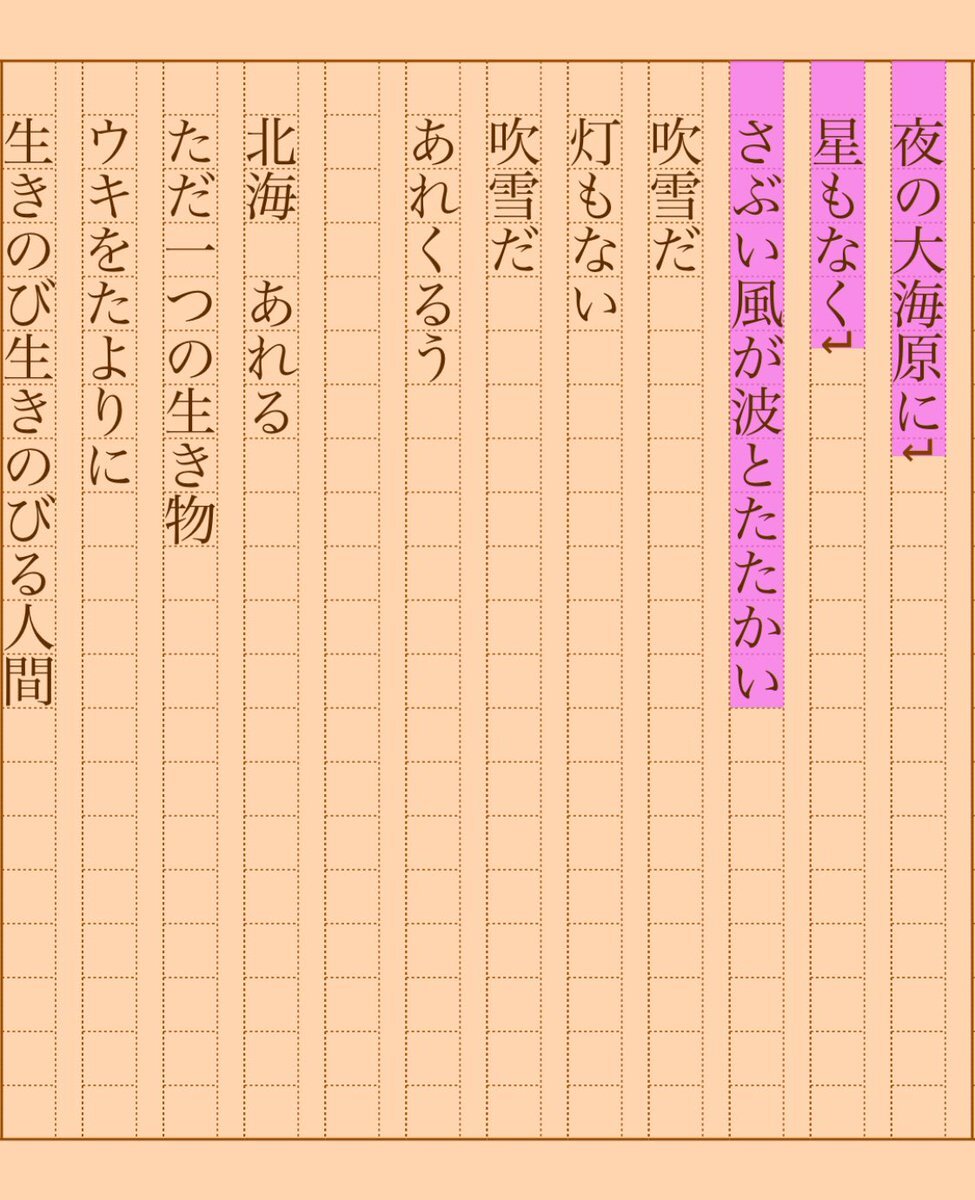 夜の大海原に↵
星もなく↵
さぶい風が波とたたかい
吹雪だ
灯もない
吹雪だ
あれくるう
北海　あれる
ただ一つの生き物
ウキをたよりに
生きのび生きのびる人間